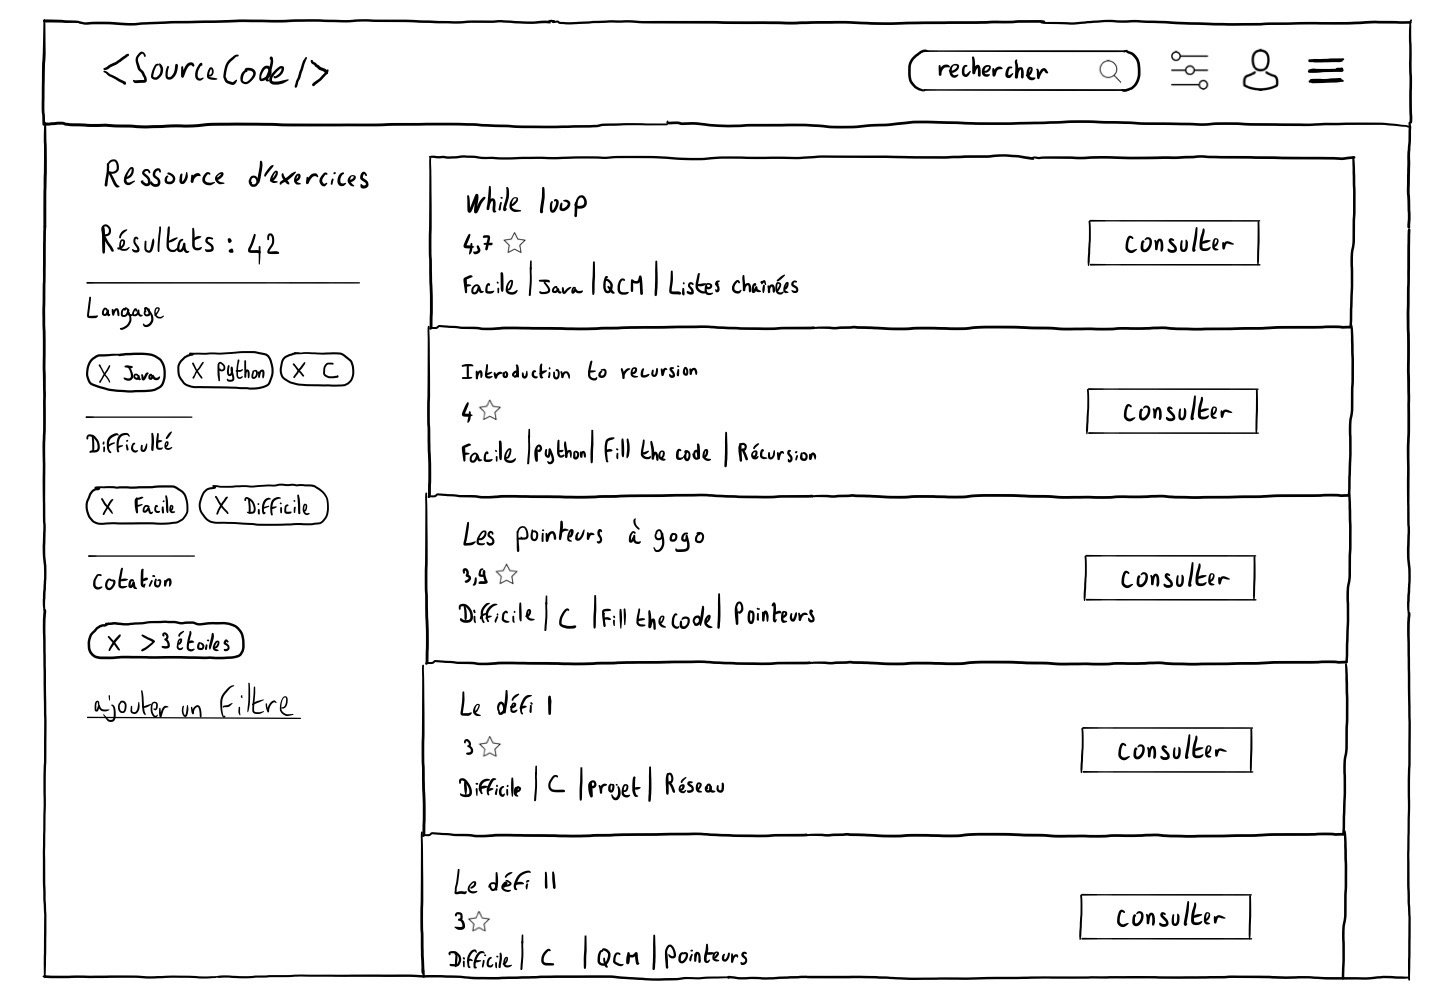 <SourceCode/>
rechercher
Ressource d'exercices
Résultats : 42
Langage
X Java X Python X C
Difficulté
X Facile X Difficile
Cotation
X >3 étoiles
ajouter un filtre
While loop
4,7
Facile | Java | QCM | Listes chaînées
Consulter
Introduction to recursion
4
Facile | Python | Fill the code | Récursion
Consulter
Les pointeurs à gogo
3,9
Difficile | C | Fill the code | Pointeurs
Consulter
Le défi I
3
Difficile | C | Projet | Réseau
Consulter
Le défi II
3
Difficile | C | QCM | Pointeurs
Consulter